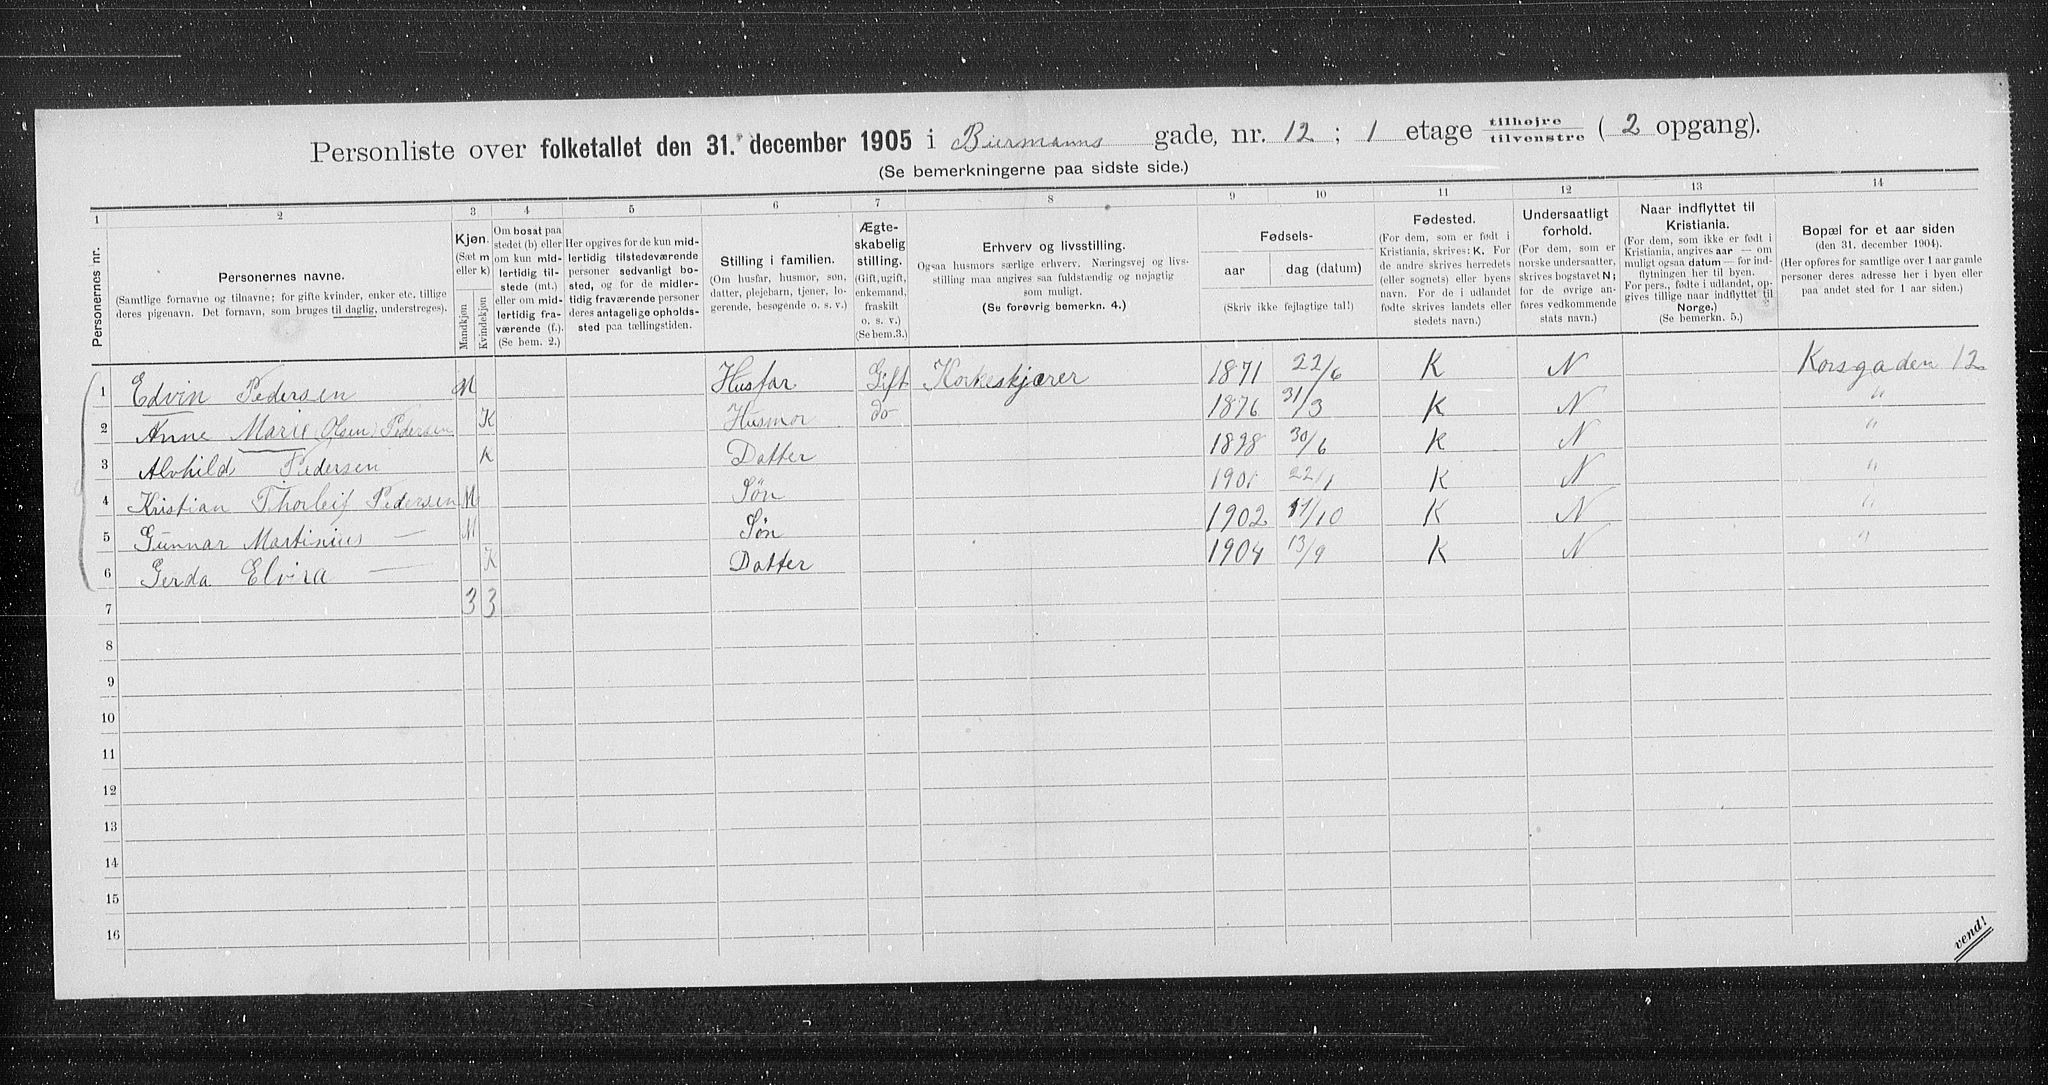 Personliste over folketallet den 31. december 1905 i Biermanns gade, nr. 12 ; 1 etage tilhøjre tilvenstre ( 2 opgang).
(Se bemerkningerne paa sidste side.)
1 2 3 4 5 6 7 8 9 10 11 12 13 14
Personernes nr.
Personernes navne.
(Samtlige fornavne og tilnavne; for gifte kvinder, enker etc. tillige
deres pigenavn. Det fornavn, som bruges til daglig, understreges).
Kjøn.
(Sæt m
eller k)
Mandkjøn
Kvindekjøn
Om bosat paa
stedet (b) eller
om kun mid-
lertidig til-
stede (mt.)
eller om mid-
lertidig fra-
værende (f.)
(Se bem. 2.)
Her opgives for de kun mid-
lertidig tilstedeværende
personer sedvanligt bo-
sted, og for de midler-
tidig fraværende personer
deres antagelige opholds-
sted paa tællingstiden.
Stilling i familien.
(Om husfar, husmor, søn,
datter, plejebarn, tjener, lo-
gerende, besøgende o. s. v.)
Ægte-
skabelig
stilling.
(Gift, ugift,
enkemand,
fraskilt
o. s. v.)
(Se bem.3.)
Erhverv og livsstilling.
Ogsaa husmors særlige erhverv. Næringsvej og livs-
stilling maa angives saa fuldstændig og nøjagtig
som muligt.
(Se forøvrig bemerkn. 4.)
Fødsels-
aar
dag (datum)
(Skriv ikke fejlagtige tal!)
Fødested.
(For dem, som er født i
Kristiania, skrives: K. For
de andre skrives herredets
(eller sognets) eller byens
navn. For de i udlandet
fødte skrives landets eller
stedets navn.)
Undersaatligt
forhold.
(For dem, som er
norske undersaatter,
skrives bogstavet N;
for de øvrige an-
føres vedkommende
stats navn.)
Naar indflyttet til
Kristiania.
(For dem, som ikke er født i
Kristiania, angives aar — om
muligt ogsaa datum — for ind-
flytningen her til byen.
For pers., fødte i udlandet, op-
gives tillige naar indflyttet til
Norge.)
(Se bemerkn. 5.)
Bopæl for et aar siden
(den 31. december 1904).
(Her opføres for samtlige over 1 aar gamle
personer deres adresse her i byen eller
paa andet sted for 1 aar siden.)
1 Edvin Pedersen M Husfar Gift Korkeskjærer 1871 22/6 K N Korsgaden 12
2 Anne Marie (Olsen) Pedersen K Husmor do 1876 31/3 K N "
3 Alvhild Pedersen K Datter 1898 30/6 K N "
4 Kristian Thorleif Pedersen M Søn 1901 22/1 K N "
5 Gunnar Martinius — M Søn 1902 /10 K N "
6 Gerda Elvira — K Datter 1904 13/9 K N "
7 3 3
8
9
10
11
12
13
14
15
16
vend!